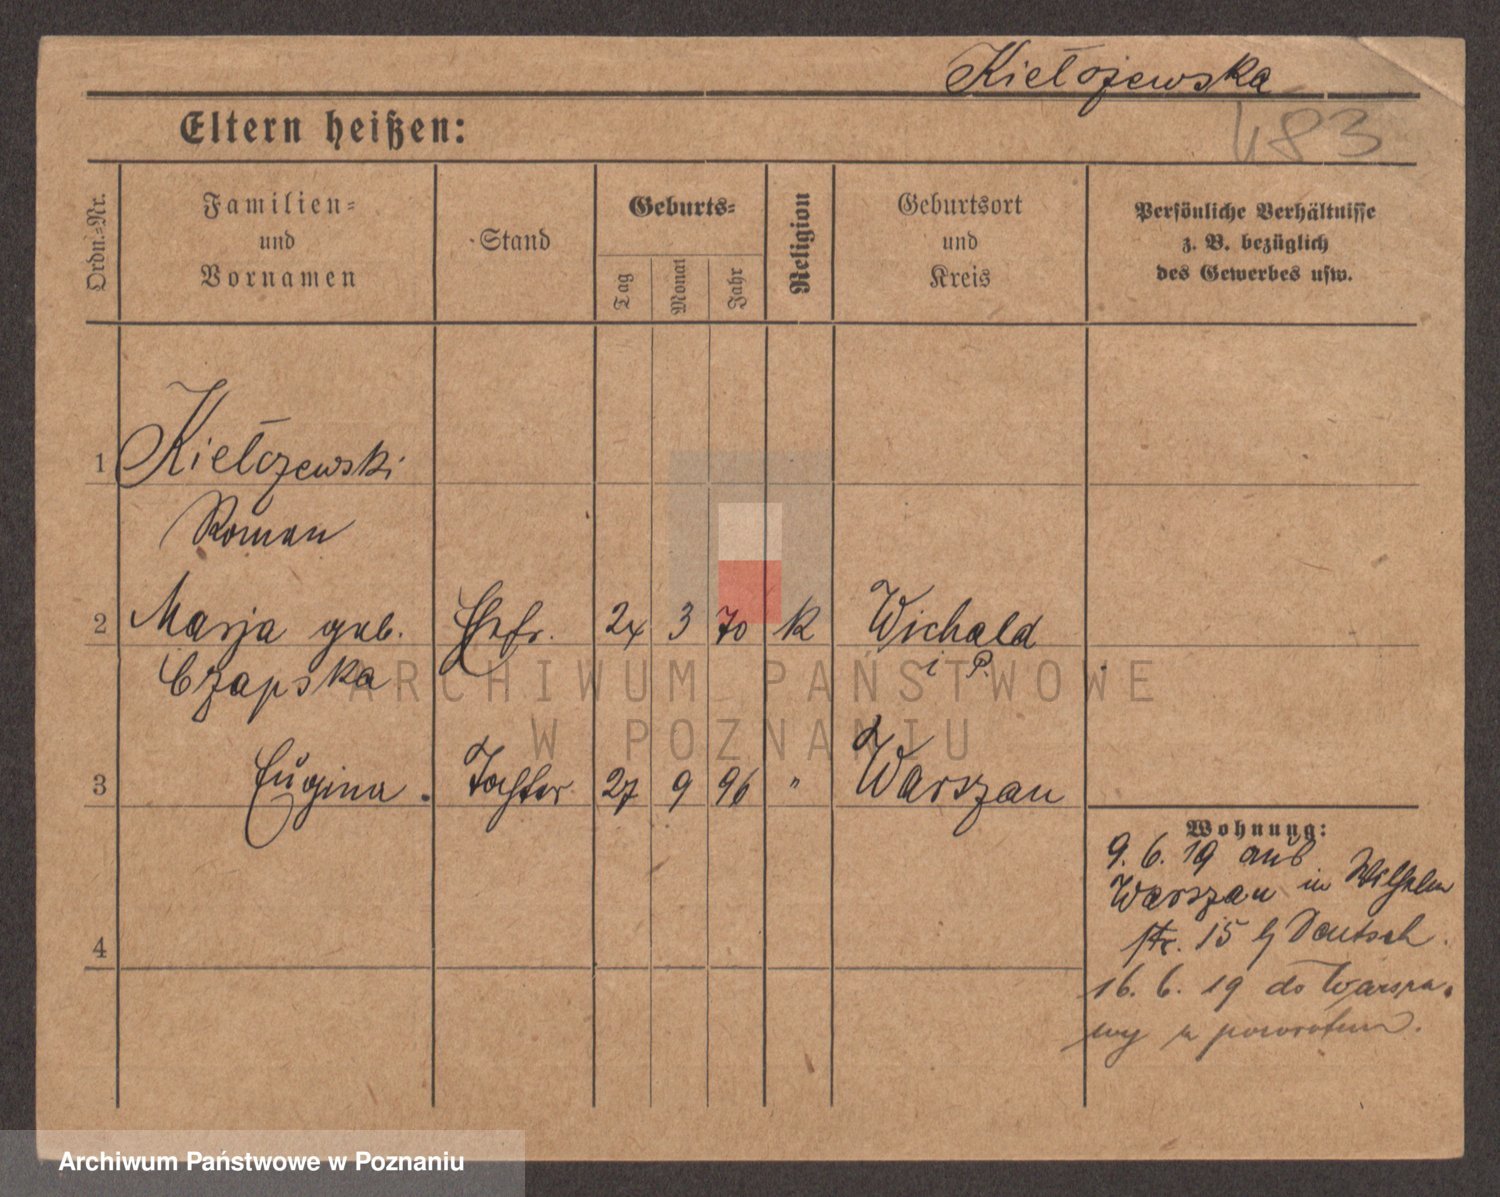 Kiełczewska
Eltern heißen:
483
Ordn.-Nr.
Familien-
und
Vornamen
Stand
Geburts-
Tag
Monat
Jahr
Religion
Geburtsort
und
Kreis
Persönliche Verhältnisse
z. B. bezüglich
des Gewerbes usw.
1 Kiełczewski
Roman
2 Marja geb. Ehfr. 24 3 70 K Wichald
Czapska i P.
3 Eugina. Tochter 27 9 96 " Warszau
Wohnung:
9. 6. 19 aus
Warszau in Wilhelm
str. 15 bj Deutsch.
4
16. 6. 19 do Warsza-
wy z powrotem.
ARCHIWUM PAŃSTWOWE
W POZNANIU
Archiwum Państwowe w Poznaniu